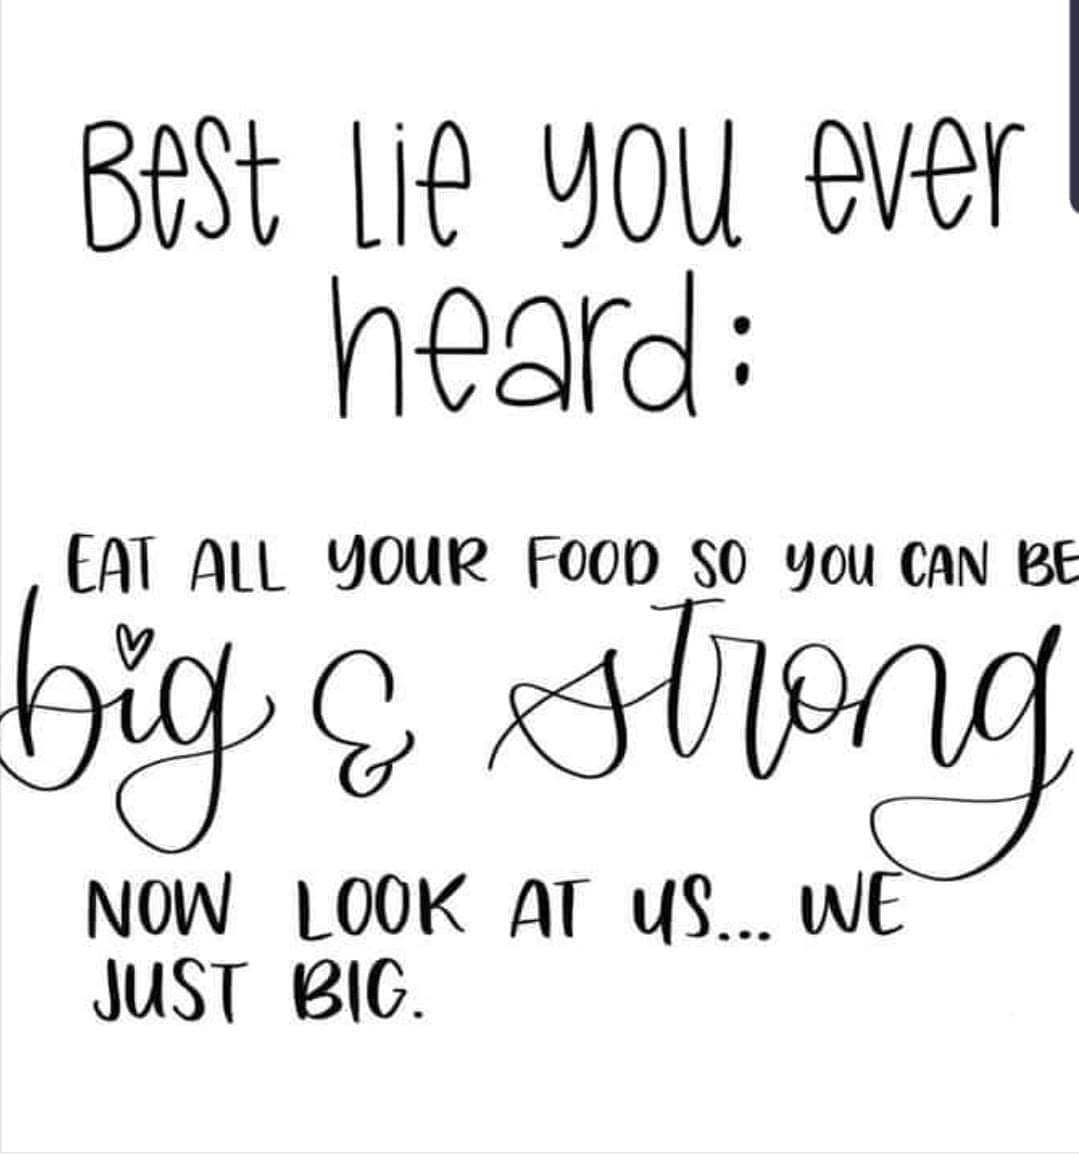 Best Lie you ever
heard:
EAT ALL YOUR FOOD SO YOU CAN BE
big & strong
NOW LOOK AT US... WE
JUST BIG.